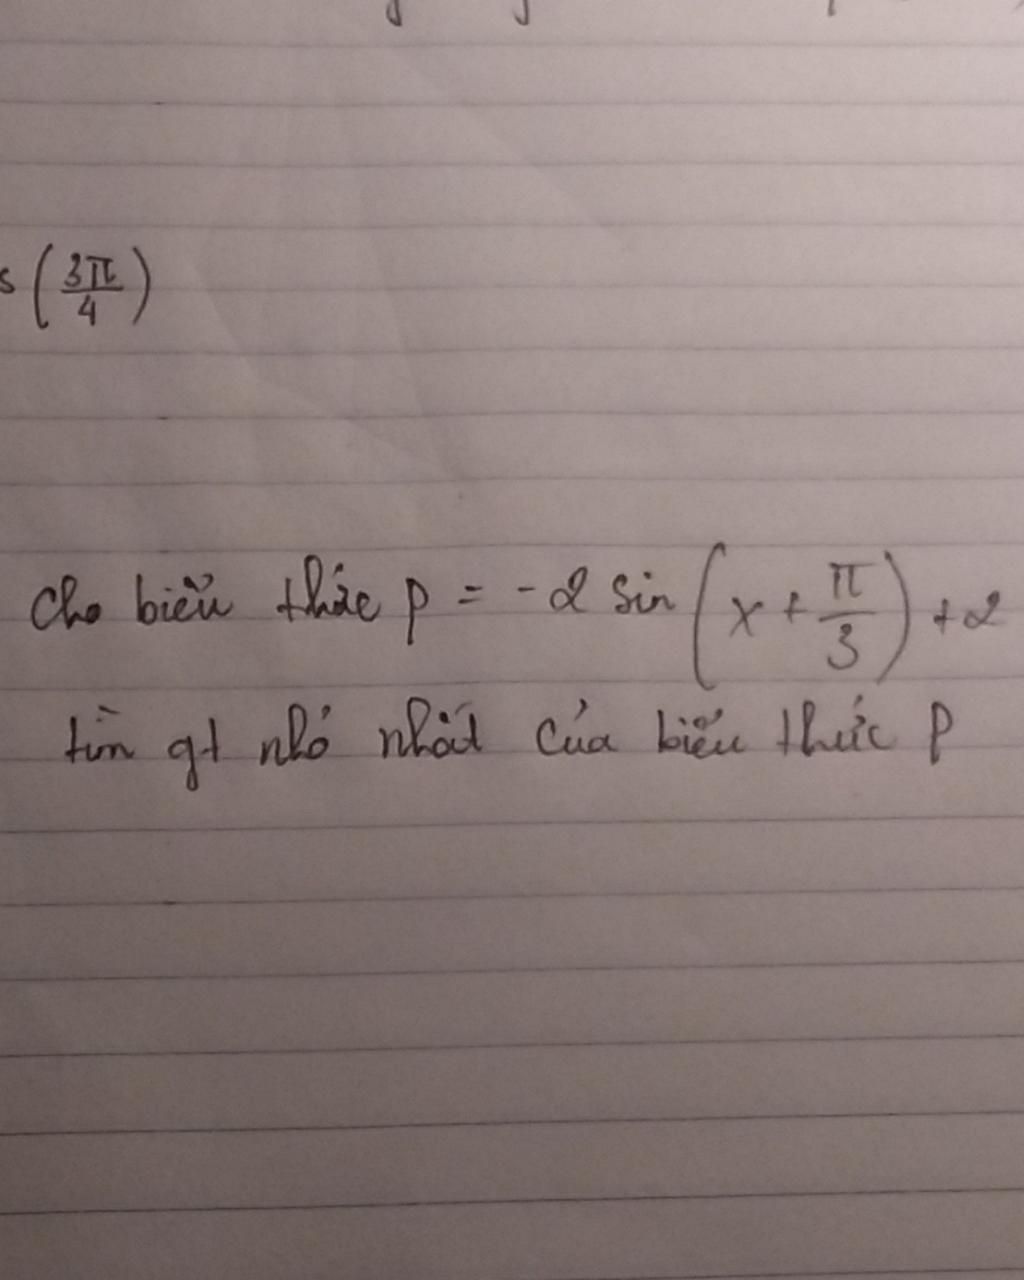 s (3π/4)
Cho biểu thức P = -2 sin (x + π/3) + 2
tìm gt nhỏ nhất của biểu thức P